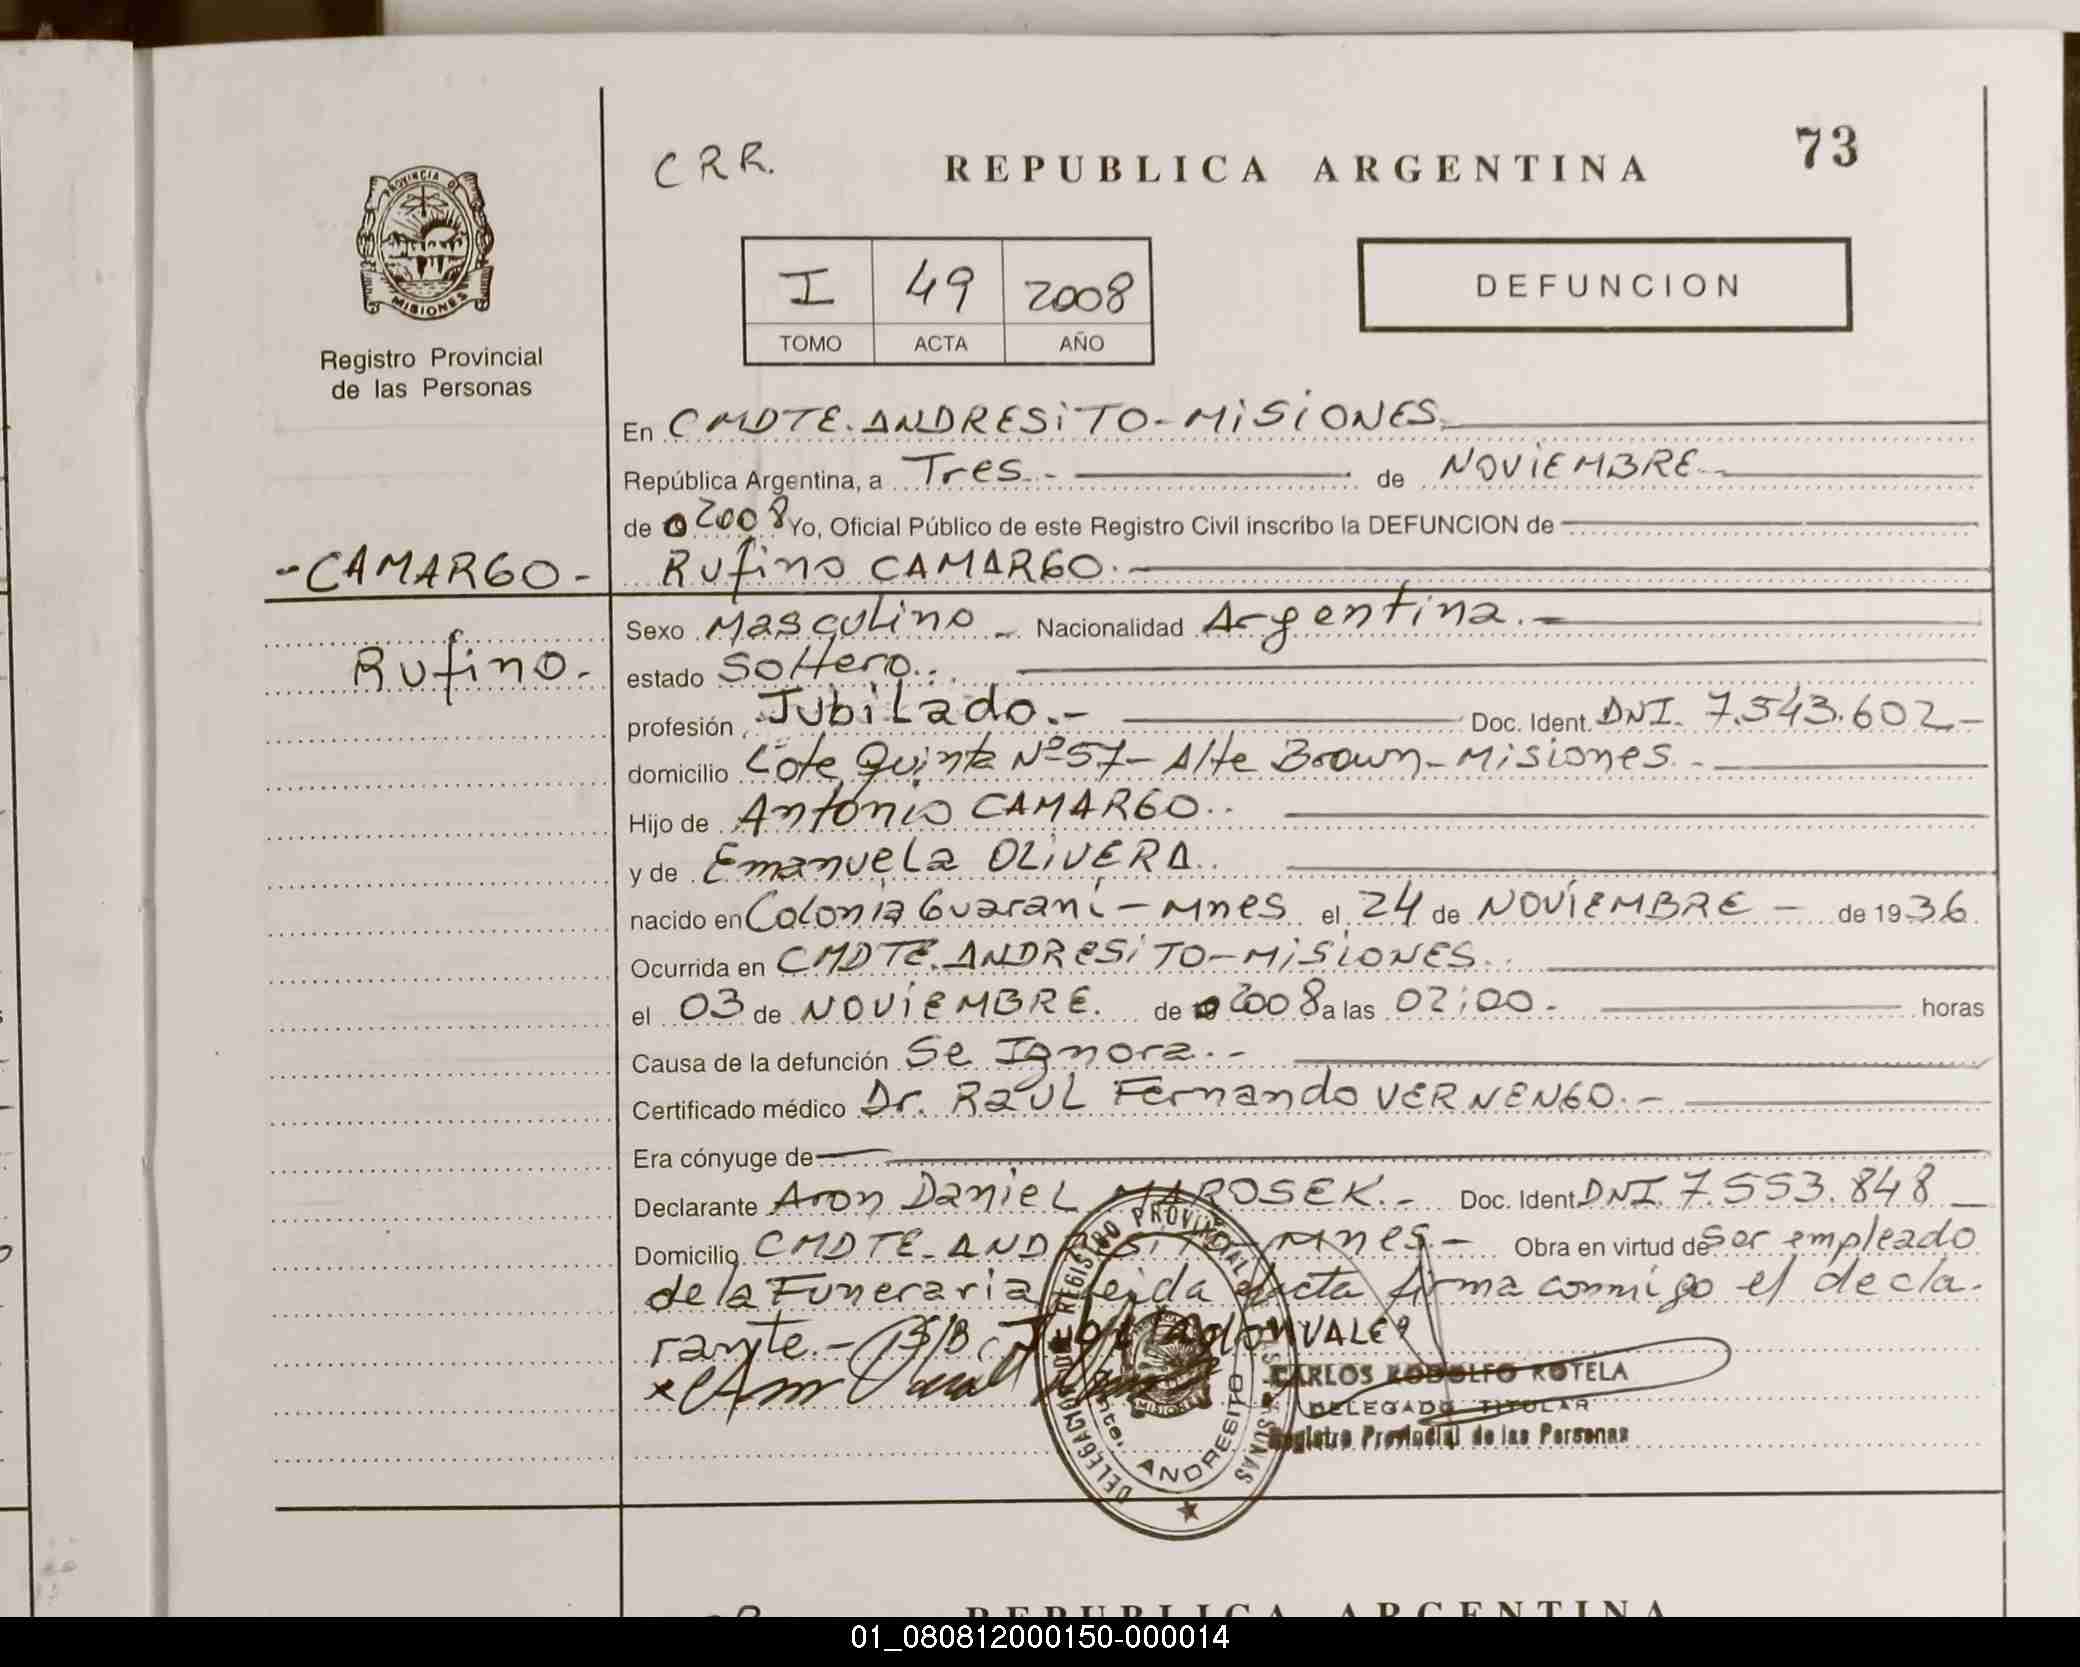 CRR.
REPUBLICA ARGENTINA
73
PROVINCIA DE
MISIONES
Registro Provincial
de las Personas
I 49 2008
TOMO ACTA AÑO
DEFUNCION
En CMDTE. ANDRESiTO-MiSiONES
República Argentina, a Tres.- de NOViEMBRE.-
de 2008 Yo, Oficial Público de este Registro Civil inscribo la DEFUNCION de
-CAMARGO- Rufino CAMARGO.
Rufino.-
Sexo Masculino Nacionalidad Argentina.-
estado Soltero..
profesión Jubilado.- Doc. Ident. DNI. 7.543.602-
domicilio Lote Quinta Nº57- Alte Brown- Misiones.-
Hijo de Antonio CAMARGO..
y de Emanuela OLiVERA..
nacido en Colonia Guaraní - Mnes el 24 de NOViEMBRE - de 1936
Ocurrida en CMDTE. ANDRESiTO-MiSiONES..
el 03 de NOViEMBRE. de 2008 a las 02:00.- horas
Causa de la defunción Se Ignora.-
Certificado médico Dr. RaUL Fernando VERNENGO.-
Era cónyuge de
Declarante Aron DanieL MAROSEK.- Doc. Ident. DNI. 7.553.848
Domicilio CMDTE- ANDRESiTO- Mnes.- Obra en virtud de Ser empleado
de la Funeraria leida Acta firma conmigo el decla-
rante.- S/B: Jubilado VALE
CARLOS RODOLFO ROTELA
DELEGADO TITULAR
Registro Provincial de las Personas
REGISTRO PROVINCIAL DE LAS PERSONAS
DELEGACION
MISIONES
Cmte. ANDRESITO
REPUBLICA ARGENTINA
01_080812000150-000014